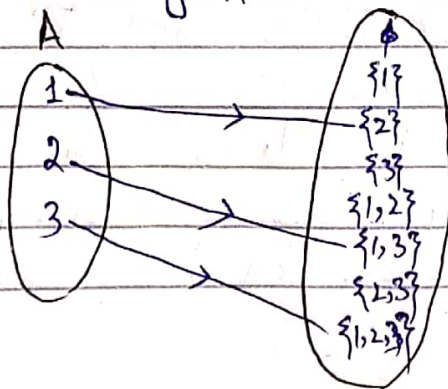 A
1
2
3
ϕ
{1}
{2}
{3}
{1,2}
{1,3}
{2,3}
{1,2,3}